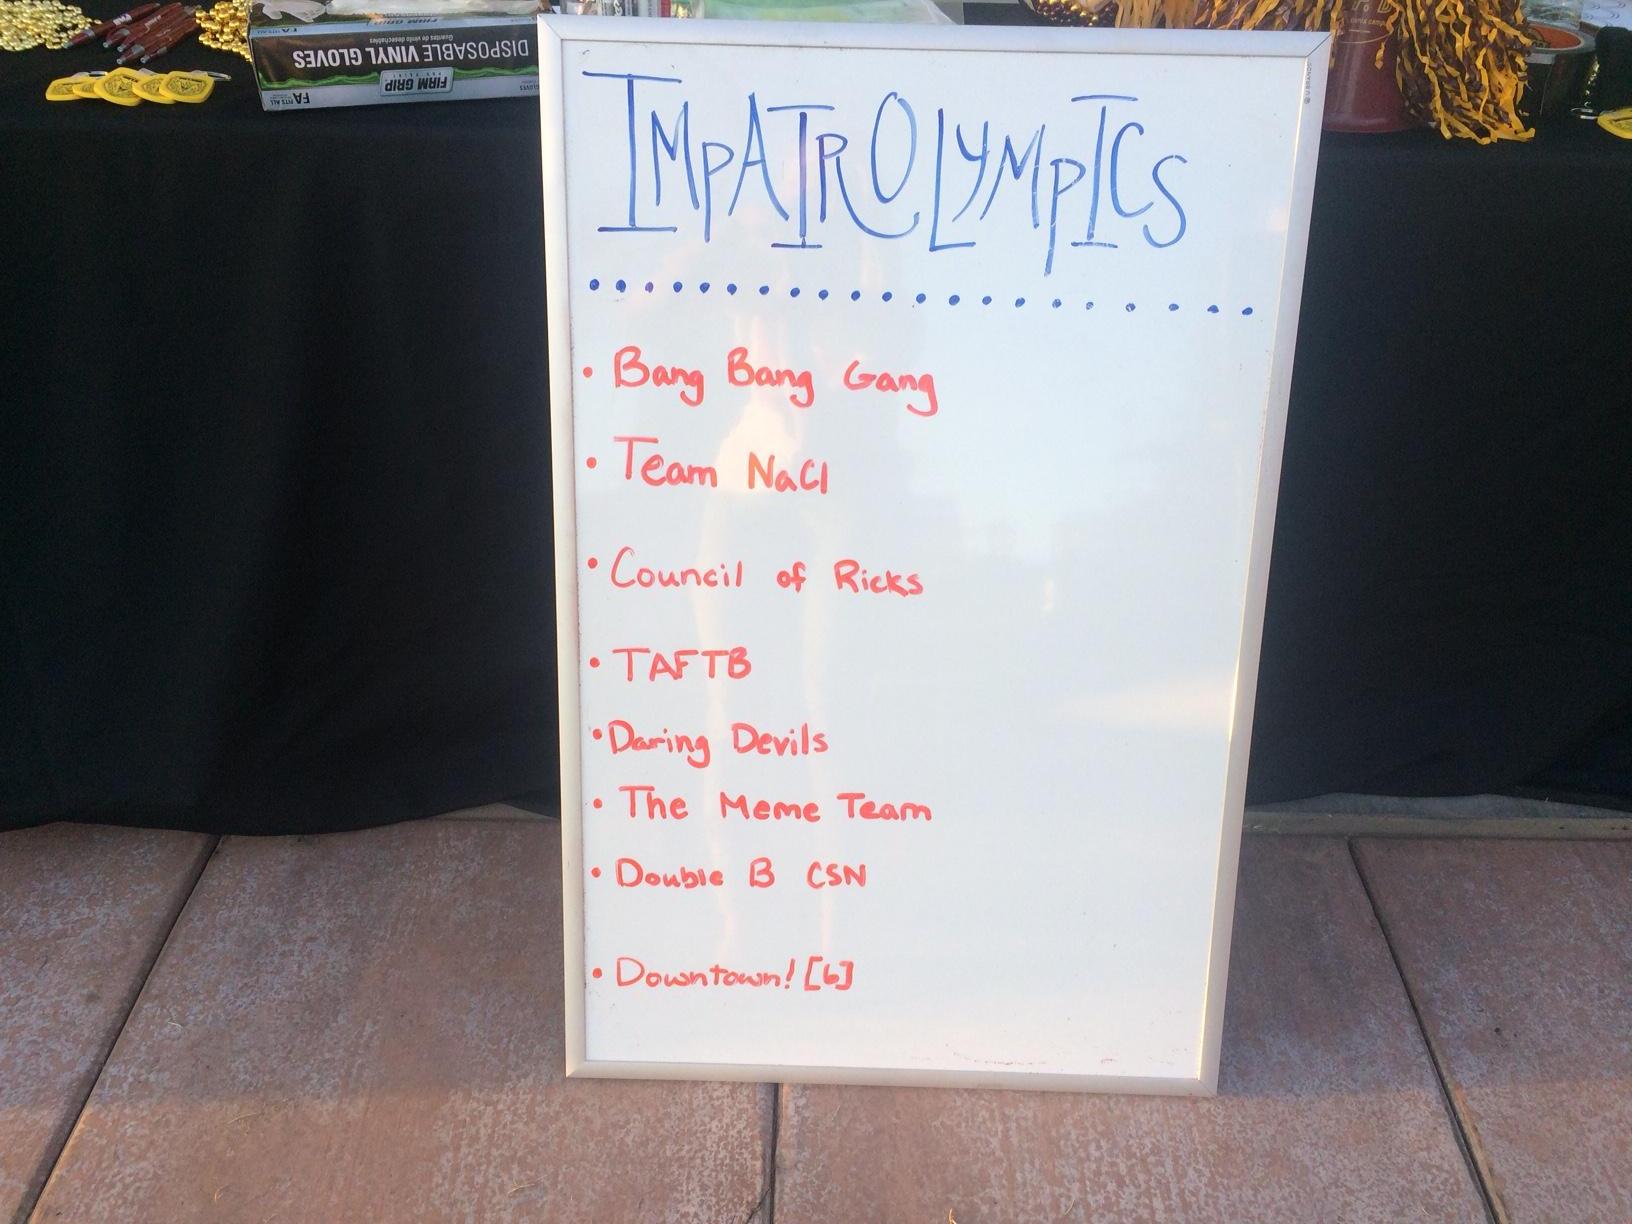 DISPOSABLE VINYL GLOVES
Guantes de vinilo desechables
FIRM GRIP
FA FITS ALL
IMPAIROLYMPICS
• Bang Bang Gang
• Team NaCl
• Council of Ricks
• TAFTB
• Daring Devils
• The Meme Team
• Double B CSN
• Downtown! [6]